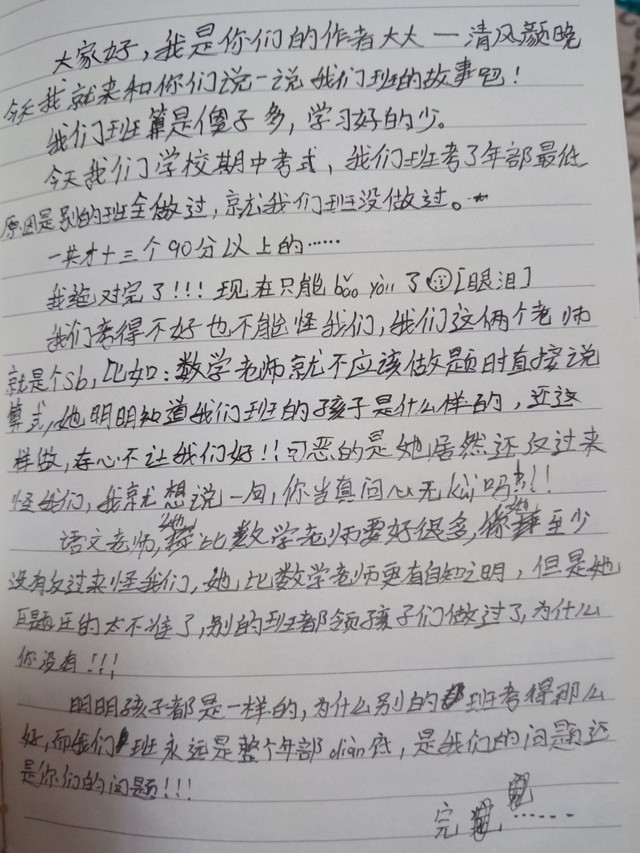 大家好，我是你们的作者大大一清风颜晚
今天我就来和你们说一说我们班的故事吧！
我们班算是傻子多，学习好的少。
今天我们学校期中考式，我们班考了年部最低
原因是别的班全做过，就我们班没做过。
一共才十三个90分以上的……
我绝对完了!!!现在只能bǎo yòu了[眼泪]
我们考得不好也不能怪我们，我们这俩个老师
就是个sb，比如：数学老师就不应该做题时直接说
算式，她明明知道我们班的孩子是什么样的，还这
样做，存心不让我们好!!可恶的是她居然还反过来
怪我们，我就想说一句，你当真问心无kuì吗!!!
语文老师，她比数学老师要好很多，她至少
没有反过来怪我们，她比数学老师更有自知之明，但是她
题压的太不准了，别的班都领孩子们做过了，为什么
你没有!!!
明明孩子都是一样的，为什么别的班考得那么
好，而我们班永远是整个年部diàn底，是我们的问题还
是你们的问题!!!
完……